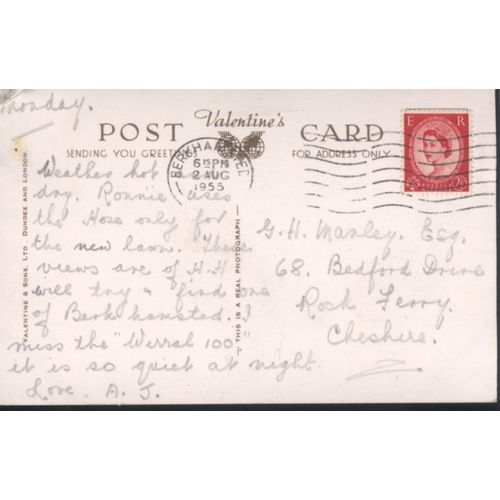 Monday.
Valentine's
POST CARD
SENDING YOU GREETINGS
FOR ADDRESS ONLY
BERKHAMSTED
6 15 PM
2 AUG
1955
E R
POSTAGE
Weather hot &
dry. Ronnie uses
the Hose only for
the new lawn. These
views are of H.H
will try & find one
of Berkhamsted. I
miss the "Wirral 100"
it is so quiet at night.
Love. A. J.
G. H. Manley. Esq.
68. Bedford Drive
Rock Ferry.
Cheshire.
VALENTINE & SONS, LTD. DUNDEE AND LONDON.
THIS IS A REAL PHOTOGRAPH